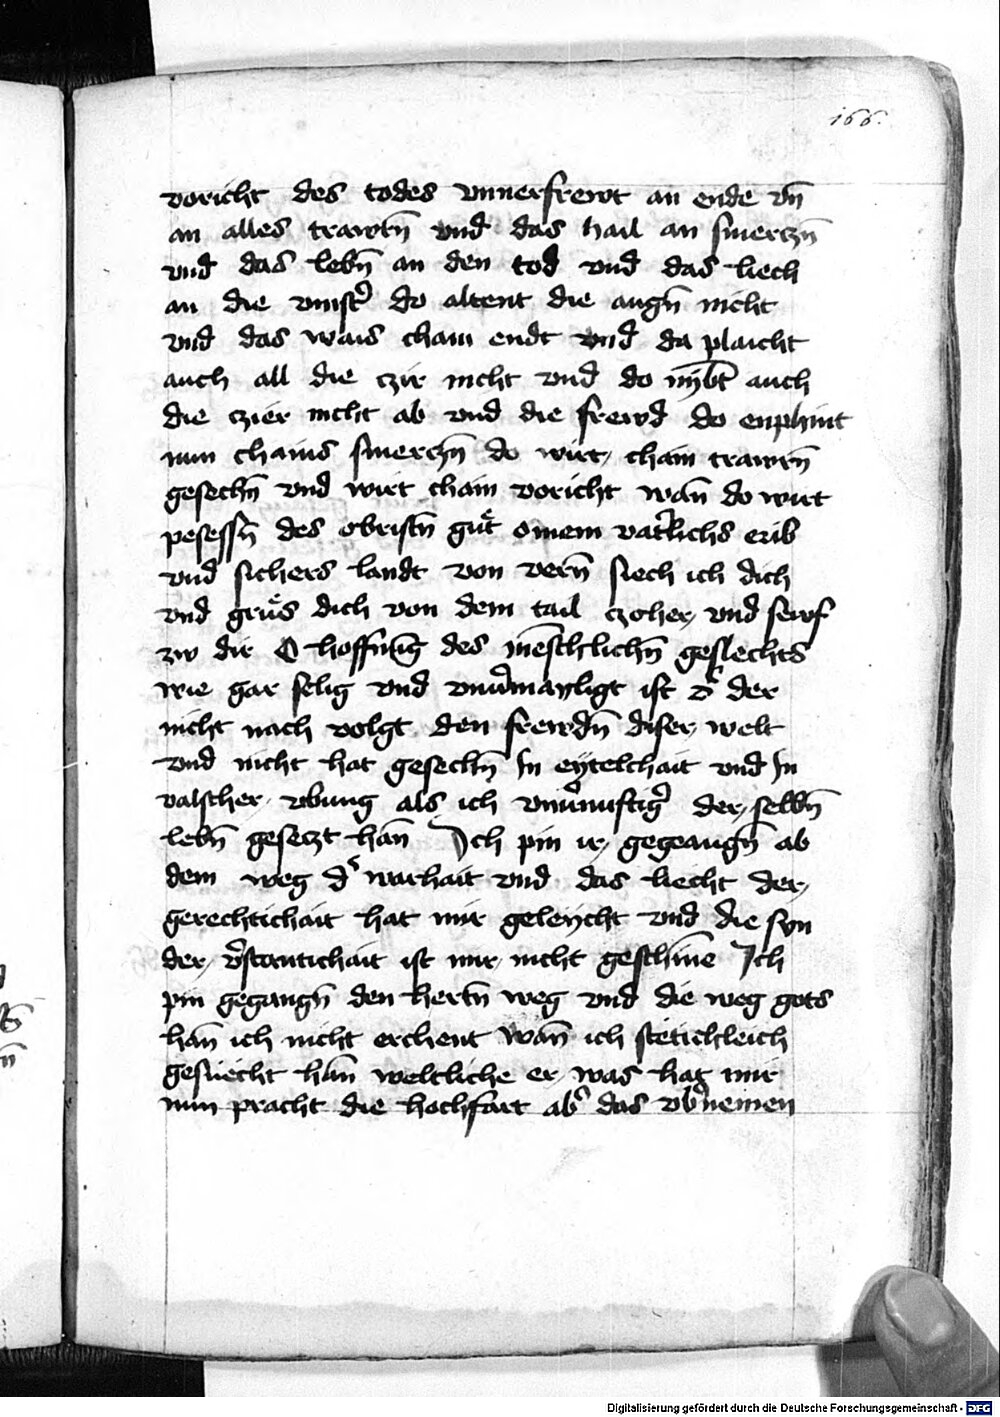 166.
voricht des todes vnnerfrewt an ende vn̄
an alles trawrn̄ vnd das hail an smerczn̄
vnd das lebn̄ an den tod vnd das liech
an die vinst͛ do altent die augn̄ nicht
vnd das wais cham endt vnd da plaicht
auch all die czir nicht vnd do nÿbt auch
die czier nicht ab vnd die frewd do enphint
nun chains smerczn̄ do wirt chain trawrn̄
gesechn̄ vnd wirt chain voricht wan̄ do wirt
pesessn̄ des obristn̄ guͤt o mein vat͛lichs erib
vnd sichers landt von verñ siech ich dich
vnd gruͤs dich von dem tail czoher vnd sewf
zw dir O hoffnūg des mēschlichn̄ geslechts
wie gar selig vnd vnu͛manligt ist d͛ der
nicht nach volgt den frewdn̄ diser welt
vnd nicht hat gesechn̄ In eytelchait vnd In
valscher vbung als ich vnu͛nuftig͛ der selbn̄
lebn̄ gesetzt han̄ Ich pin ir gegeangn̄ ab
dem weg d͛ warhait vnd das liecht der
gerechtichait hat mir geleÿcht vnd die syn
der v͛stantichait ist mir nicht geschīne Ich
pin gegangn̄ den hertn̄ weg vnd die weg gots
han̄ ich nicht erchent wan̄ ich stetichleich
gesuecht han̄ weltliche er was hat mir
nun pracht die hochfart ab͛ das vb͛nemen
Digitalisierung gefördert durch die Deutsche Forschungsgemeinschaft - DFG